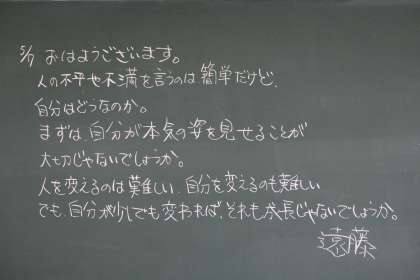 5/7 おはようございます。
人の不平や不満を言うのは簡単だけど、
自分はどうなのか。
まずは、自分が本気の姿を見せることが
大切じゃないでしょうか。
人を変えるのは難しい、自分を変えるのも難しい
でも、自分が少しでも変われば、それも成長じゃないでしょうか。
遠藤